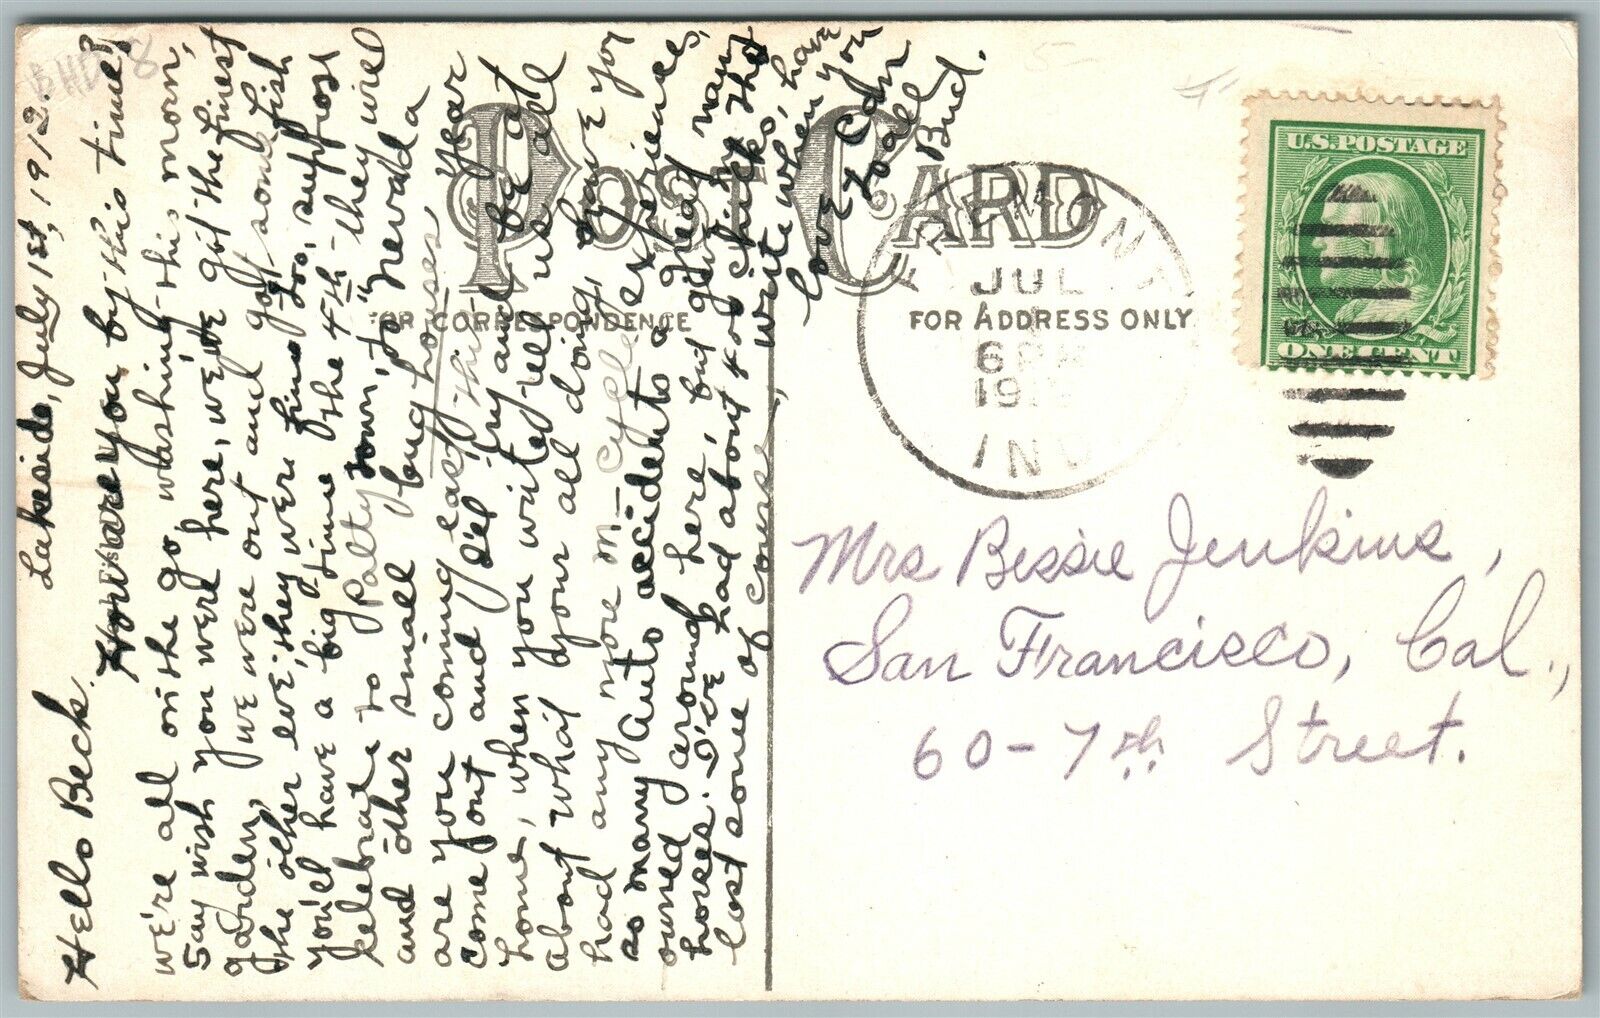 BHD 8
Lakeside, July 1st, 1912.
Hello Beck.
How are you by this time?
we're all on the go, washing this morn,
say wish you were here, we've got the finest
garden, we were out and got some fish
the other eve, they were fine too, suppose
you'll have a big time the 4th - they will
celebrate to Palty town, "to Nevada
and other small bug houses,
are you coming east this year
come out and I'll try and be at
home, when you write tell us all
about what your all doing, have you
had any more m-cycle experiences,
so many auto accidents a great many
owned around here, but quit by the
horses. I've had about 400 chicks,
lost some of course, write when, have
love you
can
to all
Bud.
POST CARD
FOR CORRESPONDENCE
FOR ADDRESS ONLY
JUL
1
6 PM
1912
IND
U.S. POSTAGE
ONE CENT
Mrs Bessie Jenkins,
San Francisco, Cal.,
60-7th Street.